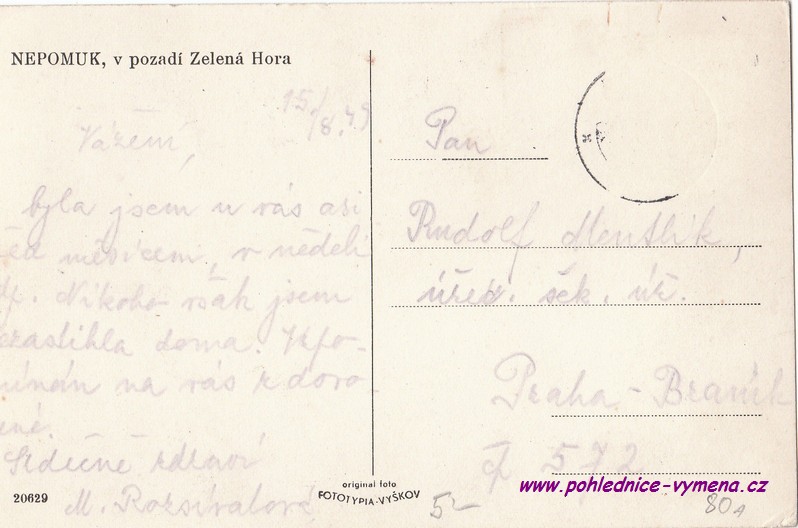 NEPOMUK, v pozadí Zelená Hora
15./8.49
Vážení,
byla jsem u vás asi
měsícem, v neděli
Nikoho však jsem
doma. Vzpo-
mínám na vás z dovo-
ené.
Srdečně zdraví
M. Rozsívalová
20629
original foto
FOTOTYPIA-VYŠKOV
Pan
Rudolf Mentlík,
úřed. sek. úř.
Praha - Braník
čp 572
www.pohlednice-vymena.cz
5-
80